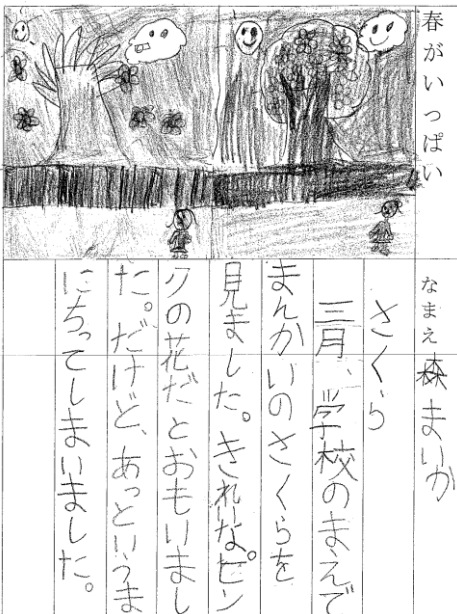 春がいっぱい
なまえ 森まいか
さくら
三月、学校のまえで
まんかいのさくらを
見ました。きれいなピン
クの花だとおもいまし
た。だけど、あっというま
にちってしまいました。